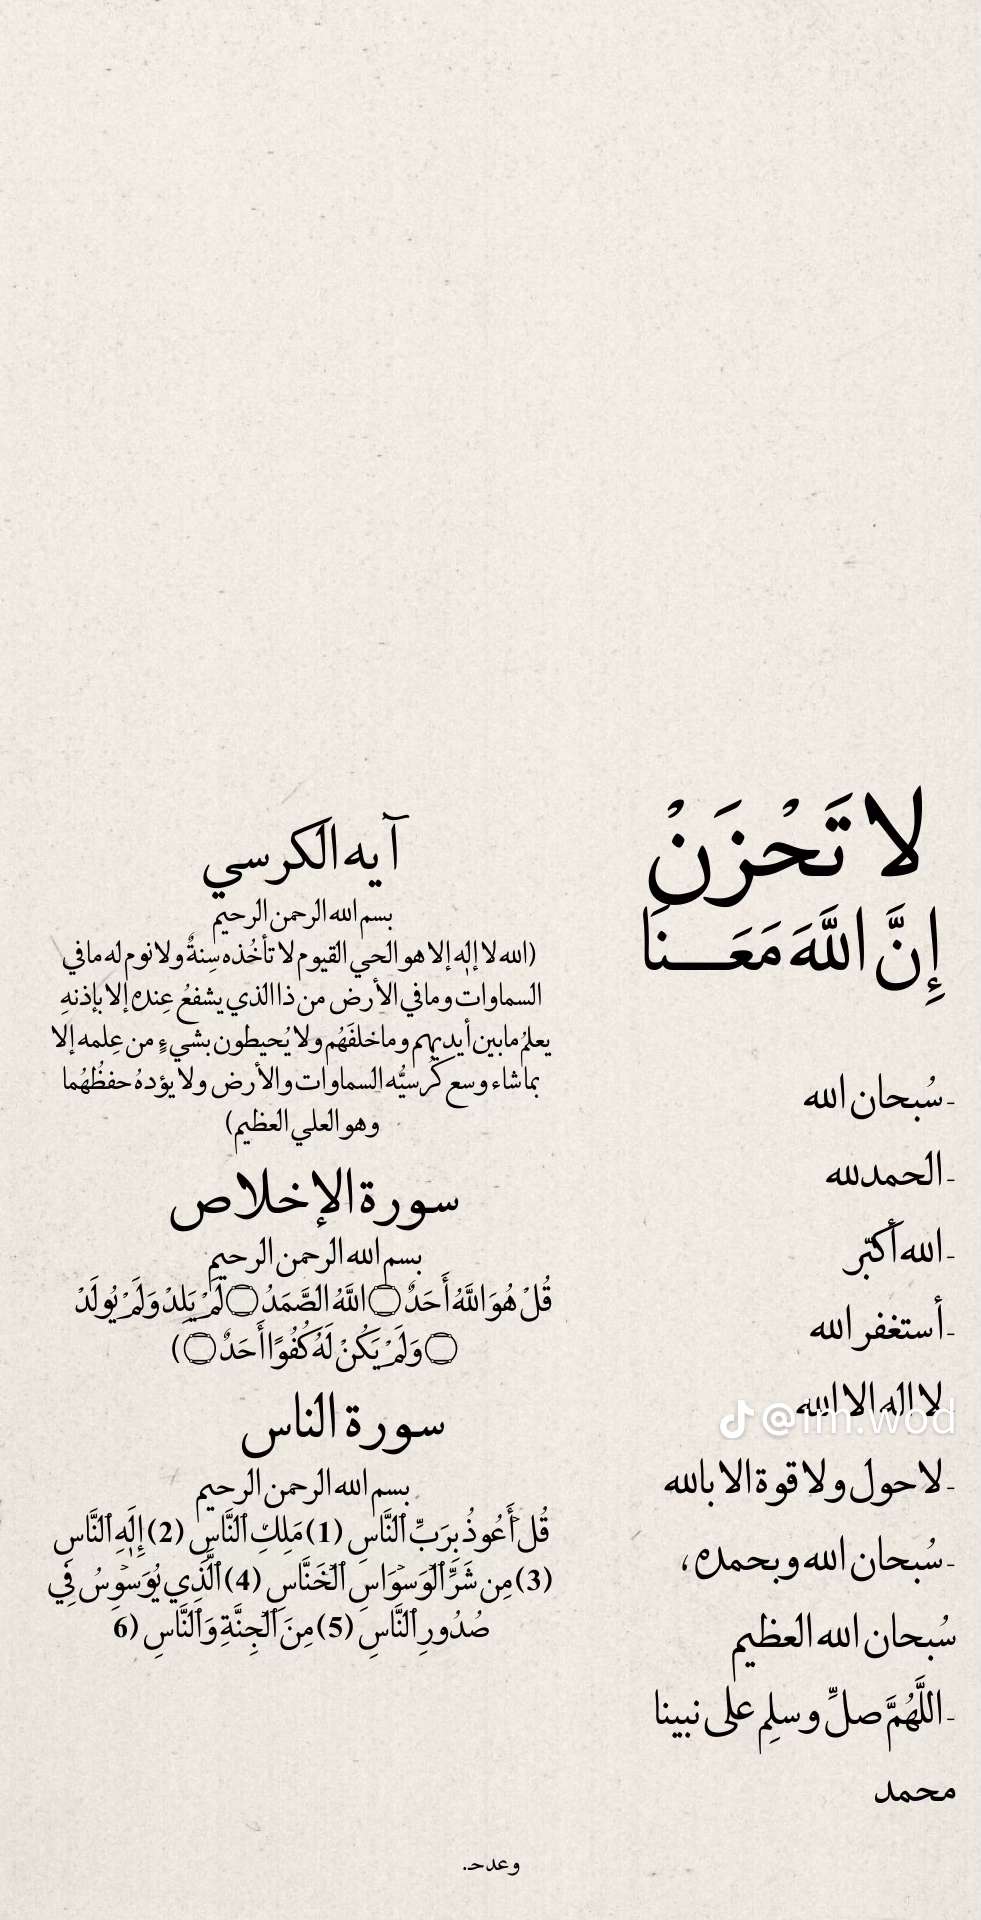 لا تَحْزَنْ
إِنَّ اللَّهَ مَعَـــنَا
-سُبحان الله
-الحمدلله
-الله أكبّر
-أستغفر الله
لا اله الا الله
-لا حول ولا قوة الا بالله
-سُبحان الله وبحمده،
سُبحان الله العظيم
-اللَّهُمَّ صلِّ وسلِم على نبينا
محمد
آيه الكرسي
بسم الله الرحمن الرحيم
(الله لا إله إلا هو الحي القيوم لا تأخُذه سِنةٌ ولا نوم له مافي
السماوات ومافي الأرض من ذا الذي يشفعُ عِنده إلا بإذنهِ
يعلمُ مابين أيديهم وماخلفَهُم ولا يُحيطون بشيءٍ من عِلمه إلا
بماشاء وسع كُرسيُّه السماوات والأرض ولا يؤدهُ حفظُهُما
وهو العلي العظيم)
سورة الإخلاص
بسم الله الرحمن الرحيم
قُلْ هُوَ اللَّهُ أَحَدٌ ۝ اللَّهُ الصَّمَدُ ۝ لَمْ يَلِدْ وَلَمْ يُولَدْ
۝ وَلَمْ يَكُنْ لَهُ كُفُوًا أَحَدٌ ۝)
سورة الناس
بسم الله الرحمن الرحيم
قُلْ أَعُوذُ بِرَبِّ ٱلنَّاسِ (1) مَلِكِ ٱلنَّاسِ (2) إِلَٰهِ ٱلنَّاسِ
(3) مِن شَرِّ ٱلْوَسْوَاسِ ٱلْخَنَّاسِ (4) ٱلَّذِي يُوَسْوِسُ فِي
صُدُورِ ٱلنَّاسِ (5) مِنَ ٱلْجِنَّةِ وَٱلنَّاسِ (6
وعدحـ.